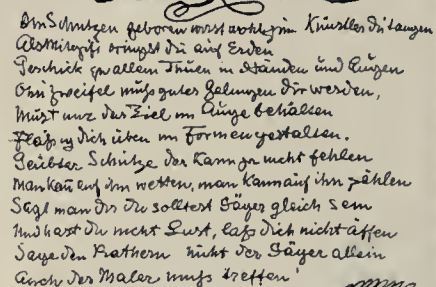 Im Schützen geboren wirst wohl zum Künstler Du taugen
Als Mitgift bringst du auf Erden
Geschick zu allem Thuen in Händen und Augen
Ohn Zweifel muß gutes Gelingen Dir werden,
Mußt nur das Ziel im Auge behalten
Fleißig dich üben im Formengestalten.
Geübter Schütze der kann ja nicht fehlen
Man kan auf ihn wetten, man kann auf ihn zählen
Sagt man dir du solltest Jäger gleich sein
Und hast du nicht Lust, laß dich nicht äffen
Sage den Rathern nicht der Jäger allein
Auch der Maler muß treffen